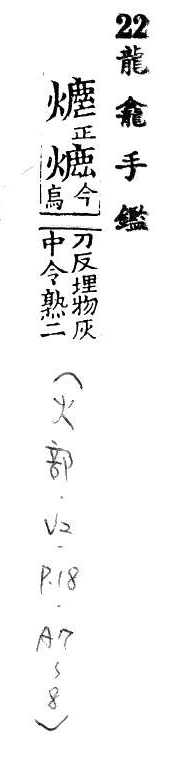 22 龍龕手鑑
正
今
烏
刀反埋物灰
中令熟二
(火部.V2-P.18-A7~8)